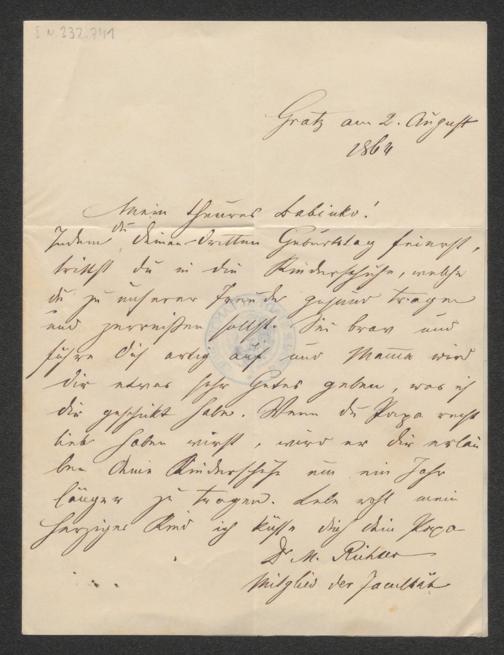 I.N. 232.741
Gratz am 2. August
1864
Mein theures Babinko!
Indem du deinen dritten Geburtstag feierst,
trittst du in die Kinderschuhe, welche
du zu unserer Freude gesund tragen
und zerreißen sollst. Sei brav und
führe dich artig auf und Mama wird
dir etwas sehr Gutes geben, was ich
dir geschikt habe. Wenn du Papa recht
lieb haben wirst, wird er dir erlau
ben deine Kinderschuhe um ein Jahr
länger zu tragen. Lebe wohl mein
herziges Kind ich küsse dich dein Papa
Dr M. Richter
Mitglied der Facultät